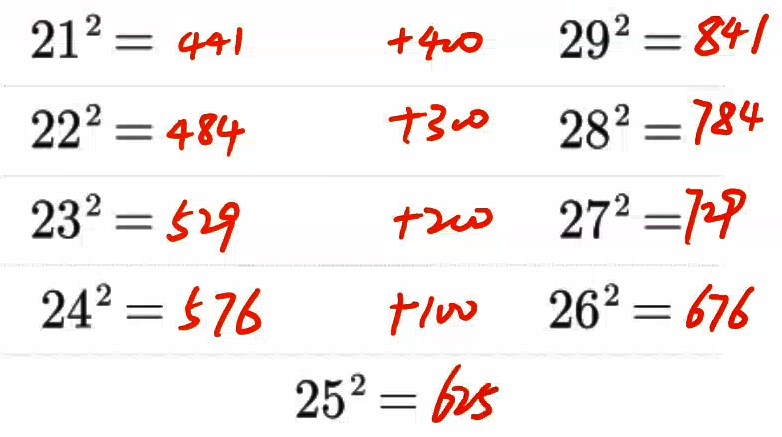 21² = 441 +400 29² = 841
22² = 484 +300 28² = 784
23² = 529 +200 27² = 729
24² = 576 +100 26² = 676
25² = 625